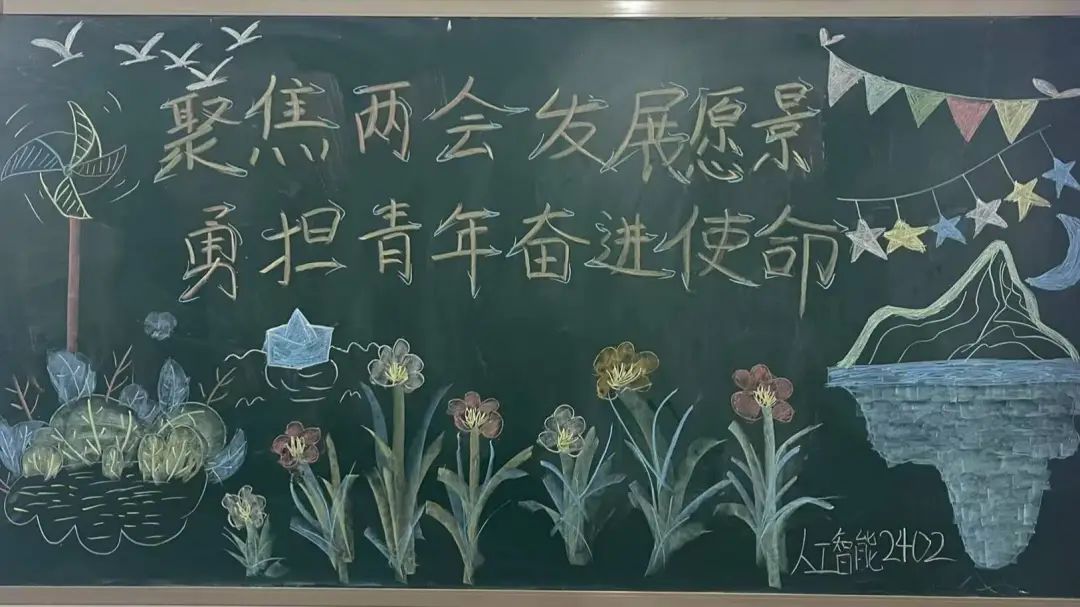 聚焦两会 发展愿景
勇担青年奋进使命
人工智能2402